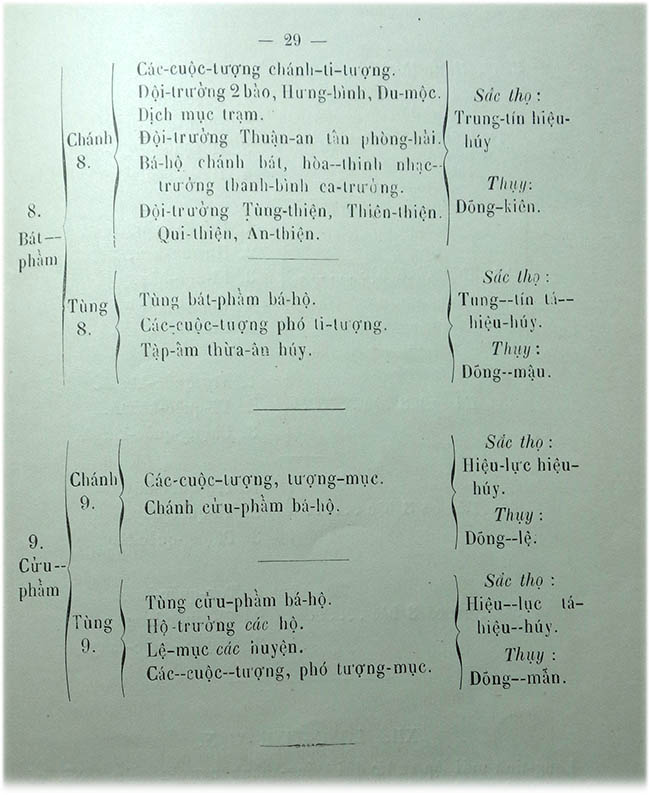 — 29 —
8.
Bát--
phẩm
Chánh
8.
Các-cuộc-tượng chánh-ti-tượng.
Đội-trưởng 2 bảo, Hưng-bình, Du-mộc.
Dịch mục trạm.
Đội-trưởng Thuận-an tân phòng-hải.
Bá-hộ chánh bát, hòa--thinh nhạc--
trưởng thanh-bình ca-trưởng.
Đội-trưởng Tùng-thiện, Thiên-thiện.
Qui-thiện, An-thiện.
Sắc thọ :
Trung-tín hiệu-
húy
Thụy:
Đông-kiên.
Tùng
8.
Tùng bát-phẩm bá-hộ.
Các-cuộc-tượng phó ti-tượng.
Tập-ấm thừa-ân húy.
Sắc thọ :
Tung--tín tá--
hiệu-húy.
Thụy :
Đông--mậu.
9.
Cửu--
phẩm
Chánh
9.
Các-cuộc-tượng, tượng-mục.
Chánh cửu-phẩm bá-hộ.
Sắc thọ :
Hiệu-lực hiệu-
húy.
Thụy :
Đông--lệ.
Tùng
9.
Tùng cửu-phẩm bá-hộ.
Hộ-trưởng các hộ.
Lệ-mục các huyện.
Các--cuộc--tượng, phó tượng-mục.
Sắc thọ :
Hiệu--lục tá-
hiệu--húy.
Thụy :
Đông--mẫn.